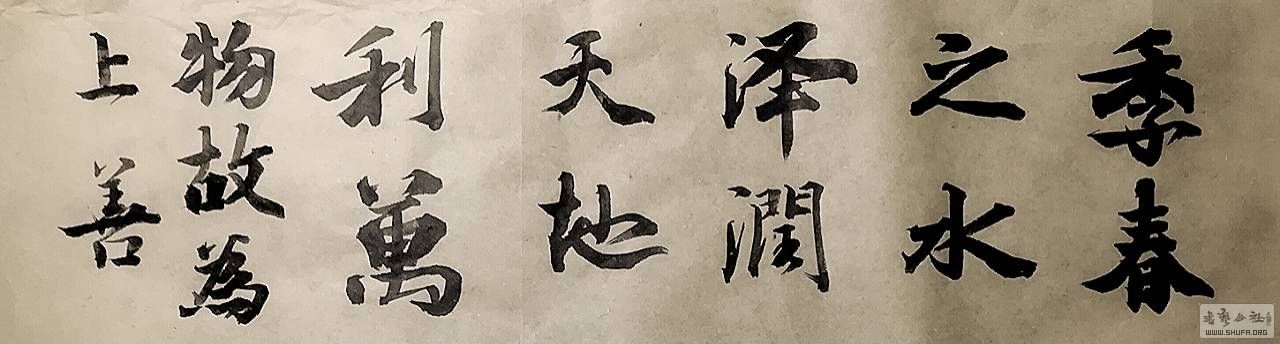 季春
之水
泽潤
天地
利萬
物故為
上善
书艺公社
WWW.SHUFA.ORG